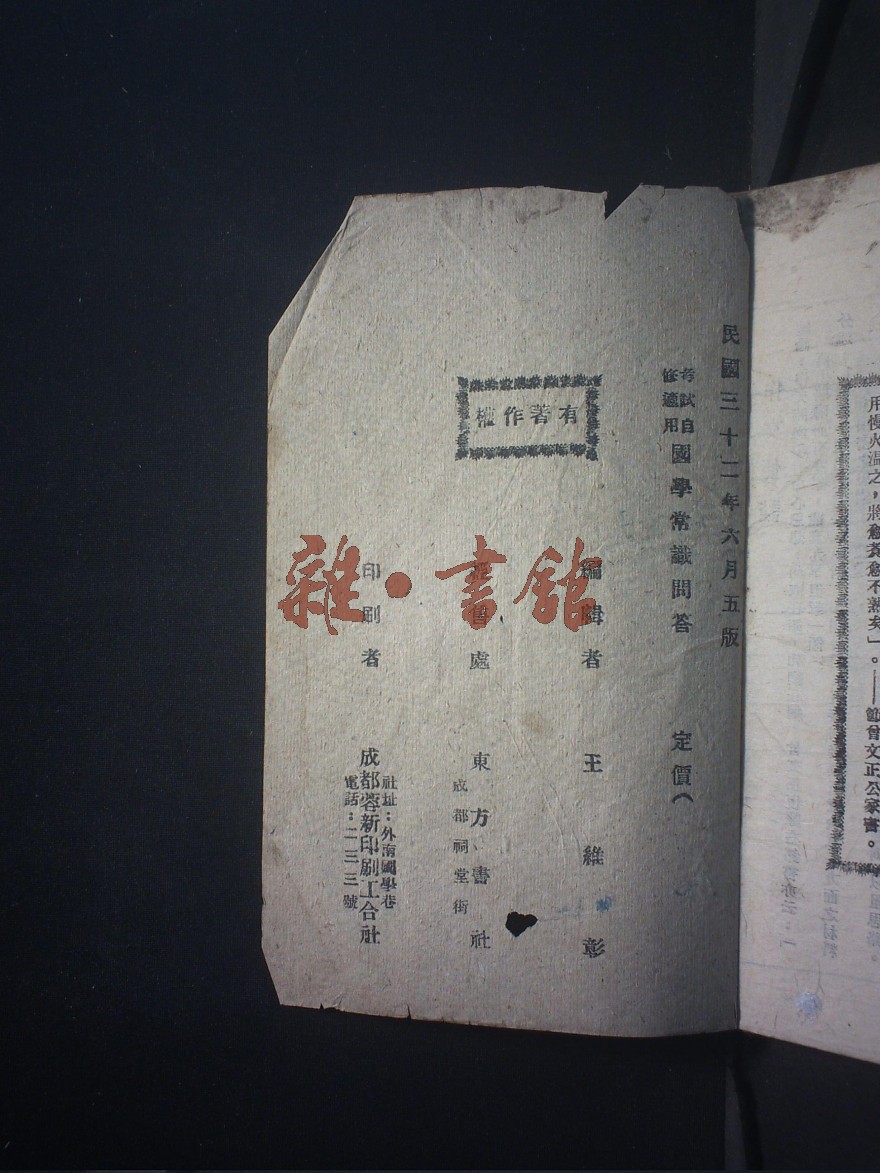 民國三十二年六月五版
考試自
修適用
國學常識問答　定價（
編輯者　王維彰
有著作權
經售處　東方書社
成都祠堂街
印刷者　成都蓉新印刷工合社
社址：外南國學巷
電話：二二三號
雜·書館
用慢火溫之，將愈煑愈不熟矣」。——節曾文正公家書。